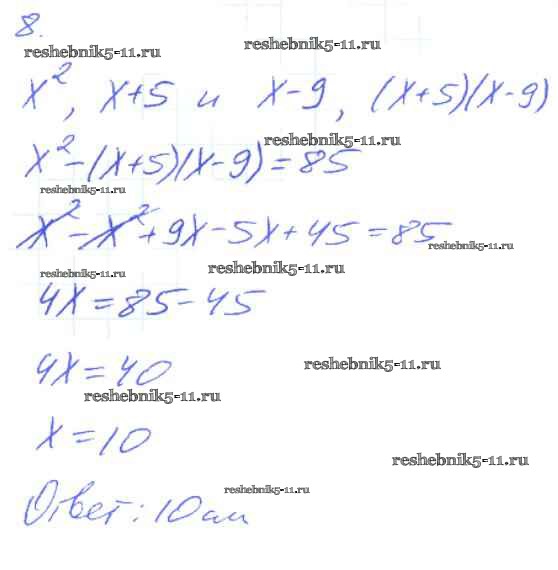 8.
reshebnik5-11.ru
reshebnik5-11.ru
x², x+5 и x-9, (x+5)(x-9)
reshebnik5-11.ru
x²-(x+5)(x-9)=85
reshebnik5-11.ru
x²-x²+9x-5x+45=85
reshebnik5-11.ru
reshebnik5-11.ru
reshebnik5-11.ru
4x=85-45
4x=40
reshebnik5-11.ru
reshebnik5-11.ru
x=10
reshebnik5-11.ru
reshebnik5-11.ru
Ответ: 10см